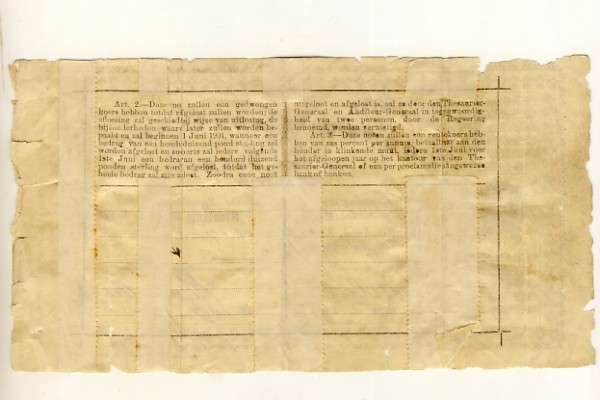 Art. 2.—Deze no zullen een gedwongen
koers hebben totdat afgelost zullen worden; de
aflossing zal geschieden bij wijze van uitloting, de
bijzonderheden waarvan later zullen worden be-
paald en zal beginnen 1 Juni 1901, wanneer een
bedrag van een honderdduizend pond sterling zal
worden afgelost en zoo vervolgens zal iedere volgende
1ste Juni een bedrag van een honderd duizend
ponden sterling word afgelost, totdat het ge-
heele bedrag zal zijn afbetaald. Zoodra eene noot
uitgeloot en afgelost is, zal ze door den Thesaurier-
Generaal en Auditeur-Generaal in tegenwoordig-
heid van twee personen, door de Regeering
benoemd, worden vernietigd.
Art. 3.—Deze noten zullen een rentekoers heb-
ben van zes percent per annum, betaalbaar aan den
houder in klinkende munt, iedere 1ste Juni voor
het afgeloopen jaar op het kantoor van den The-
saurier-Generaal of een per proclamatie aangewezen
bank of banken.